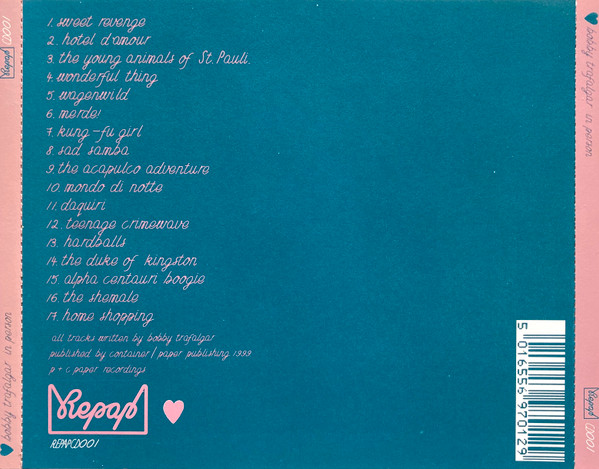 1. sweet revenge
2. hotel d'amour
3. the young animals of St. Pauli.
4. wonderful thing
5. wagenwild
6. merde!
7. kung-fu girl
8. sad samba
9. the acapulco adventure
10. mondo di notte
11. daquiri
12. teenage crimewave
13. hardballs
14. the duke of kingston
15. alpha centauri boogie
16. the shemale
17. home shopping
all tracks written by bobby trafalgar
published by container/paper publishing 1999
p + c paper recordings
Repap
REPAPCD001
Repap 0001
bobby trafalgar in person
bobby trafalgar in person
Repap 0001
5 016556 970129